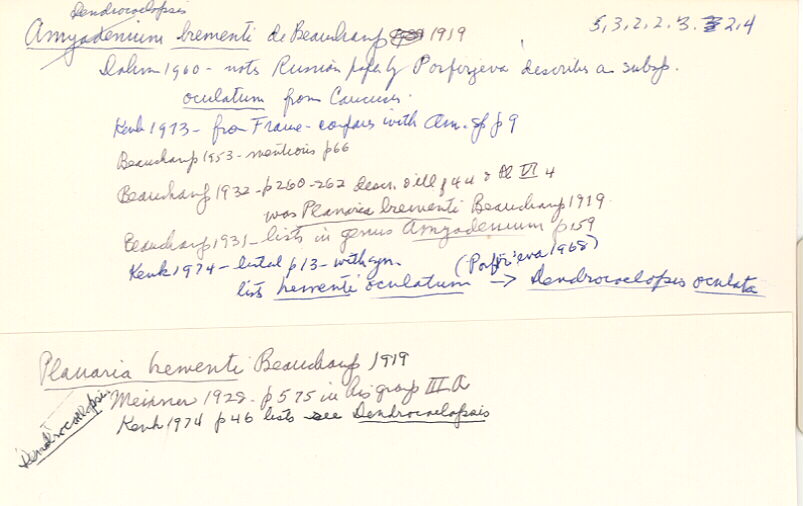 Dendrocoelopsis
Amyadenium brementi de Beauchamp 1919
5, 3, 2, 2, 3. 2, 4
Dahm 1960 - notes Russian paper by Porfirjeva describes a subsp.
oculatum from Caucusus.
Kenk 1973 - from France - compares with Am. sp p 9
Beauchamp 1953 - mentions p66
Beauchamp 1932 - p260-262 descr. & ill f 44 & Pl VI 4
was Planaria brementi Beauchamp 1919
Beauchamp 1931 - lists in genus Amyadenium p159
Kenk 1974 - listed p13 - with syn. (Porfir'eva 1968)
lists brementi oculatum -> Dendrocoelopsis oculata
Planaria brementi Beauchamp 1919
Dendrocoelopsis
Meixner 1928 - p575 in his group III A
Kenk 1974 p46 lists see Dendrocoelopsis